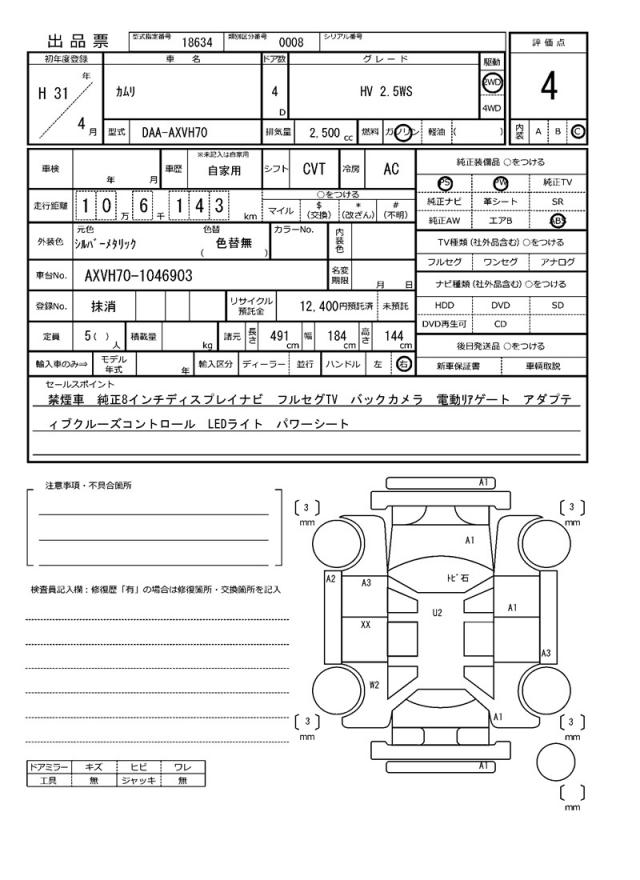 出品票 型式指定番号 18634 類別区分番号 0008 シリアル番号
評価点
4
内装 A B C
初年度登録 車名 ドア数 グレード 駆動
H 31 年 4 月 カムリ 4 D HV 2.5WS 2WD 4WD
型式 DAA-AXVH70 排気量 2,500 cc 燃料 ガソリン 軽油 ( )
車検 年 月 車歴 ※未記入は自家用 自家用 シフト CVT 冷房 AC
走行距離 1 0 万 6 千 1 4 3 km
○をつける
マイル $(交換) *(改ざん) #(不明)
外装色 元色 シルバーメタリック 色替 ( 色替無 ) カラーNo. 内装色
車台No. AXVH70-1046903 名変期限 月 日
登録No. 抹消 リサイクル預託金 12,400円預託済 未預託
定員 5( )人 積載量 kg 諸元 長さ 491 cm 幅 184 cm 高さ 144 cm
輸入車のみ⇒ モデル年式 年 輸入区分 ディーラー 並行 ハンドル 左 右
純正装備品 ○をつける
PS PW 純正TV
純正ナビ 革シート SR
純正AW エアB ABS
TV種類 (社外品含む) ○をつける
フルセグ ワンセグ アナログ
ナビ種類 (社外品含む) ○をつける
HDD DVD SD
DVD再生可 CD
後日発送品 ○をつける
新車保証書 車輌取説
セールスポイント
禁煙車 純正8インチディスプレイナビ フルセグTV バックカメラ 電動リアゲート アダプテ
ィブクルーズコントロール LEDライト パワーシート
注意事項・不具合箇所
検査員記入欄：修復歴「有」の場合は修復箇所・交換箇所を記入
ドアミラー キズ ヒビ ワレ
工具 無 ジャッキ 無
A1
[ 3 ] mm
[ 3 ] mm
A1
トビ石
A2
A3
A1
U2
XX
A3
W2
A1
[ 3 ] mm
[ 3 ] mm
A1
[ ] mm